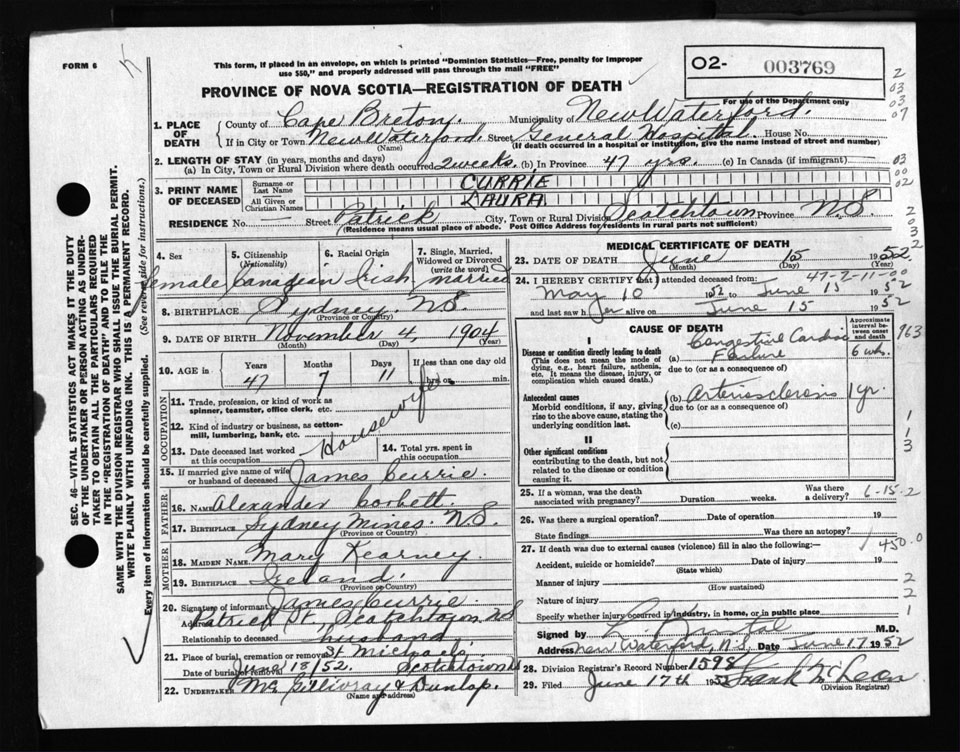 FORM 6
This form, if placed in an envelope, on which is printed "Dominion Statistics—Free, penalty for improper
use $50," and properly addressed will pass through the mail "FREE"
02- 003769
For use of the Department only
PROVINCE OF NOVA SCOTIA—REGISTRATION OF DEATH
2
03
03
07
1. PLACE OF DEATH
County of Cape Breton Municipality of New Waterford.
If in City or Town New Waterford. Street General Hospital. House No.
(Name) (If death occurred in a hospital or institution, give the name instead of street and number)
2. LENGTH OF STAY (in years, months and days)
(a) In City, Town or Rural Division where death occurred 2 weeks. (b) In Province 47 yrs. (c) In Canada (if immigrant)
03
00
02
3. PRINT NAME OF DECEASED
Surname or Last Name CURRIE
All Given or Christian Names LAURA
RESIDENCE No. — Street Patrick City, Town or Rural Division Scotchtown Province N.S.
(Residence means usual place of abode. Post Office Address for residents in rural parts not sufficient)
2
0
3
2
4. Sex female
5. Citizenship (Nationality) Canadian
6. Racial Origin Irish
7. Single, Married, Widowed or Divorced (write the word) married
8. BIRTHPLACE Sydney N.S.
(Province or Country)
9. DATE OF BIRTH November 4, 1904
(Month) (Day) (Year)
10. AGE in Years 47 Months 7 Days 11 If less than one day old hrs. or min.
OCCUPATION
11. Trade, profession, or kind of work as spinner, teamster, office clerk, etc. Housewife
12. Kind of industry or business, as cotton-mill, lumbering, bank, etc.
13. Date deceased last worked at this occupation
14. Total yrs. spent in this occupation
15. If married give name of wife or husband of deceased James Currie.
FATHER
16. NAME Alexander Corbett
17. BIRTHPLACE Sydney Mines. N.S.
(Province or Country)
MOTHER
18. MAIDEN NAME Mary Kearney.
19. BIRTHPLACE Ireland.
(Province or Country)
20. Signature of informant James Currie.
Address Patrick St, Scotchtown NS
Relationship to deceased husband
21. Place of burial, cremation or removal St Michaels,
Date of burial or removal June 18/52. Scotchtown
22. UNDERTAKER McGillivray & Dunlop.
(Name and Address)
MEDICAL CERTIFICATE OF DEATH
23. DATE OF DEATH June 15 1952
(Month) (Day) (Year)
24. I HEREBY CERTIFY that I attended deceased from: 47-2-11-00
May 10 1952 to June 15 1952
and last saw her alive on June 15 1952
CAUSE OF DEATH
Approximate interval between onset and death
963
I
Disease or condition directly leading to death
(This does not mean the mode of dying, e.g., heart failure, asthenia, etc. It means the disease, injury, or complication which caused death.)
(a) Congestive Cardiac Failure 6 wks.
due to (or as a consequence of)
Antecedent causes
Morbid conditions, if any, giving rise to the above cause, stating the underlying condition last.
(b) Arteriosclerosis 1 yr.
due to (or as a consequence of)
(c)
1
1
3
II
Other significant conditions
contributing to the death, but not related to the disease or condition causing it.
25. If a woman, was the death associated with pregnancy? Duration weeks. Was there a delivery?
6-15-2
26. Was there a surgical operation? Date of operation 19
State findings Was there an autopsy?
27. If death was due to external causes (violence) fill in also the following:—
450.0
Accident, suicide or homicide? Date of injury 19
(State which)
Manner of injury
(How sustained)
Nature of injury
Specify whether injury occurred in industry, in home, or in public place
2
2
1
Signed by M.D.
Address New Waterford, N.S. Date June 17 1952
28. Division Registrar's Record Number 1598
29. Filed June 17th 1952 Frank McLean
(Division Registrar)
SEC. 46—VITAL STATISTICS ACT MAKES IT THE DUTY
OF THE UNDERTAKER OR PERSON ACTING AS UNDER-
TAKER TO OBTAIN ALL THE PARTICULARS REQUIRED
IN THE "REGISTRATION OF DEATH" AND TO FILE THE
SAME WITH THE DIVISION REGISTRAR WHO SHALL ISSUE THE BURIAL PERMIT.
WRITE PLAINLY WITH UNFADING INK. THIS IS A PERMANENT RECORD.
Every item of information should be carefully supplied. (See reverse side for instructions.)